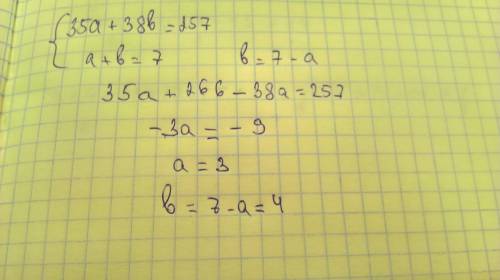 35a + 38b = 257
a + b = 7 b = 7 - a
35a + 266 - 38a = 257
-3a = - 9
a = 3
b = 7 - a = 4